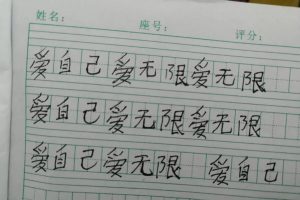 姓名： 座号： 评分：
爱自己爱无限爱无限
爱自己爱无限爱无限
爱自己爱无限 爱自己